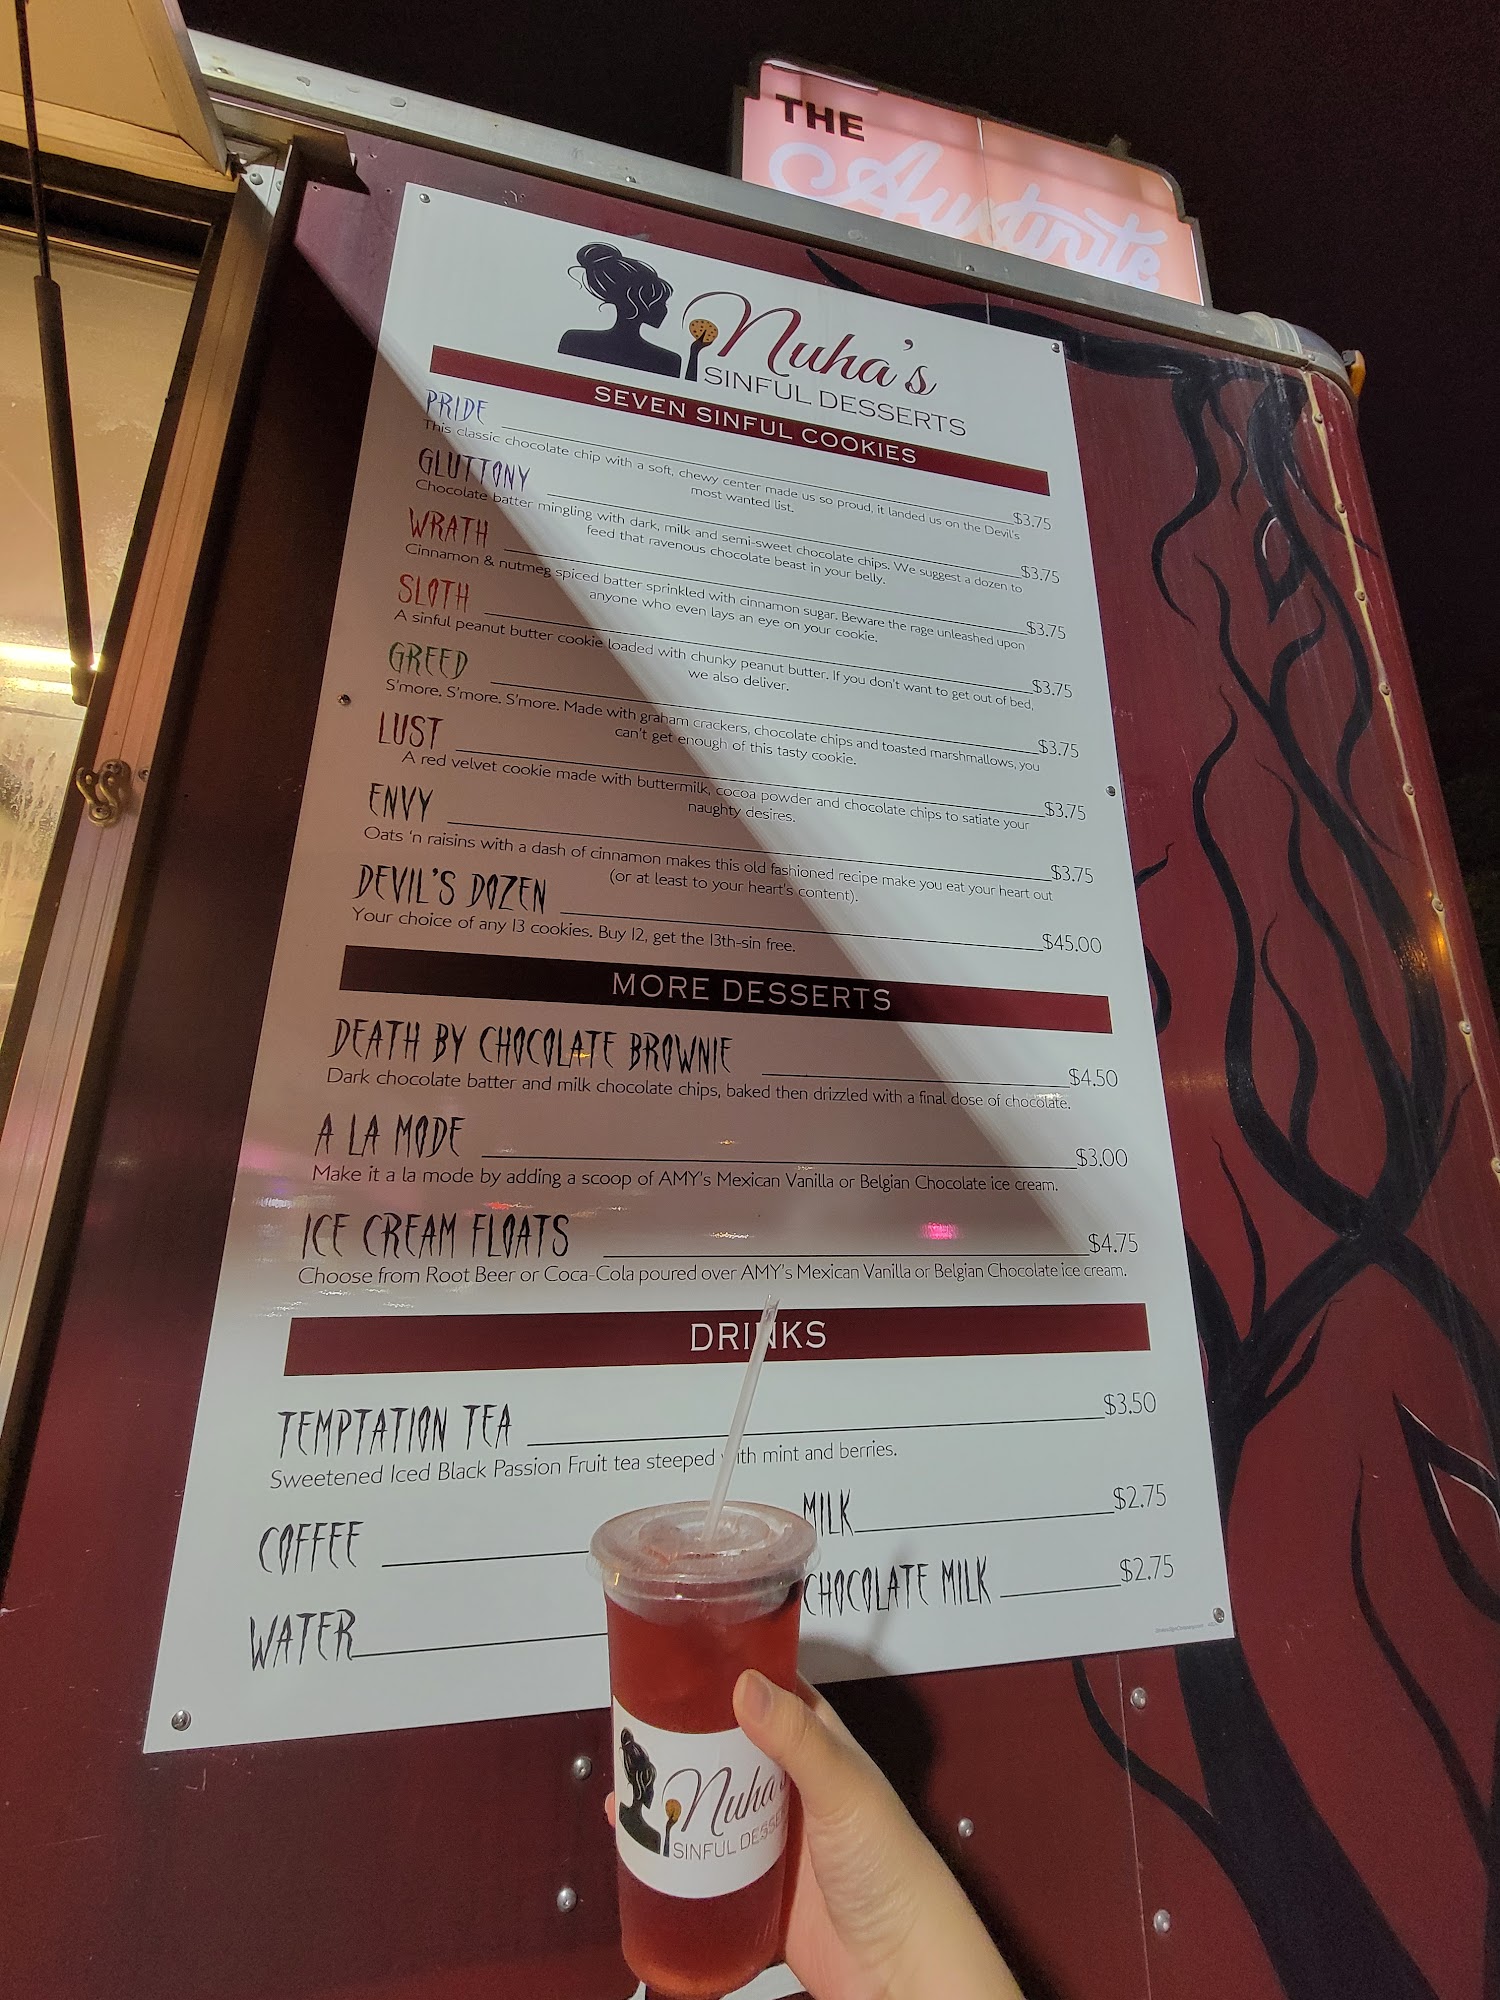 THE
Austinite
Nuha's
SINFUL DESSERTS
SEVEN SINFUL COOKIES
PRIDE $3.75
This classic chocolate chip with a soft, chewy center made us so proud, it landed us on the Devil's
most wanted list.
GLUTTONY $3.75
Chocolate batter mingling with dark, milk and semi-sweet chocolate chips. We suggest a dozen to
feed that ravenous chocolate beast in your belly.
WRATH $3.75
Cinnamon & nutmeg spiced batter sprinkled with cinnamon sugar. Beware the rage unleashed upon
anyone who even lays an eye on your cookie.
SLOTH $3.75
A sinful peanut butter cookie loaded with chunky peanut butter. If you don't want to get out of bed,
we also deliver.
GREED $3.75
S'more. S'more. S'more. Made with graham crackers, chocolate chips and toasted marshmallows, you
can't get enough of this tasty cookie.
LUST $3.75
A red velvet cookie made with buttermilk, cocoa powder and chocolate chips to satiate your
naughty desires.
ENVY $3.75
Oats 'n raisins with a dash of cinnamon makes this old fashioned recipe make you eat your heart out
(or at least to your heart's content).
DEVIL'S DOZEN $45.00
Your choice of any 13 cookies. Buy 12, get the 13th-sin free.
MORE DESSERTS
DEATH BY CHOCOLATE BROWNIE $4.50
Dark chocolate batter and milk chocolate chips, baked then drizzled with a final dose of chocolate.
A LA MODE $3.00
Make it a la mode by adding a scoop of AMY's Mexican Vanilla or Belgian Chocolate ice cream.
ICE CREAM FLOATS $4.75
Choose from Root Beer or Coca-Cola poured over AMY's Mexican Vanilla or Belgian Chocolate ice cream.
DRINKS
TEMPTATION TEA $3.50
Sweetened Iced Black Passion Fruit tea steeped with mint and berries.
COFFEE
MILK $2.75
WATER
CHOCOLATE MILK $2.75
Nuha's
SINFUL DESSE